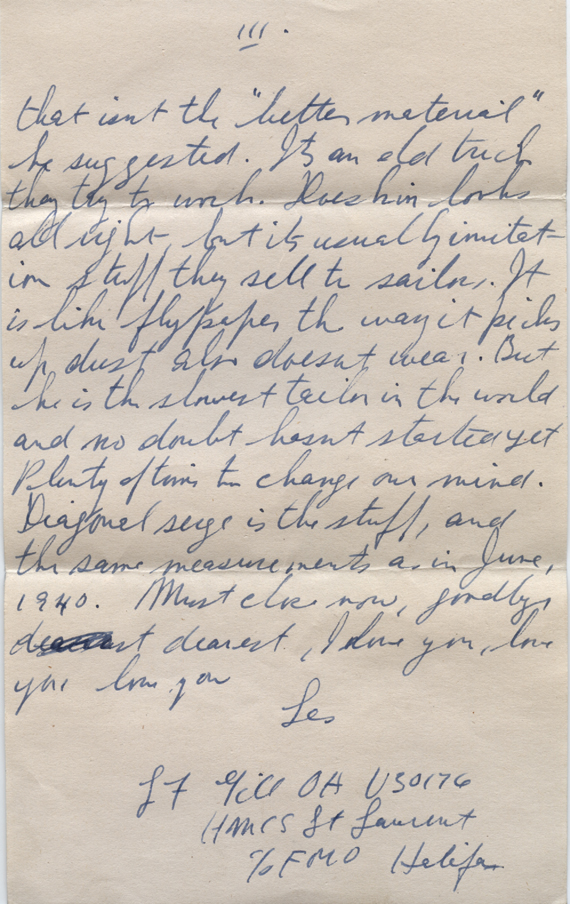 III.
that isnt the "better material"
he suggested. Its an old trick
they try to work. Doeskin looks
all right, but its usually imitat-
ion stuff they sell to sailors. It
is like flypaper the way it picks
up dust also doesnt wear. But
he is the slowest tailor in the world
and no doubt hasnt started yet
Plenty of time to change our mind.
Diagonal serge is the stuff, and
the same measurements as in June,
1940. Must close now, goodbye
dearest, I love you, love
you love you
Les
L F Gill OA V30176
HMCS St Laurent
c/o FMO Halifax